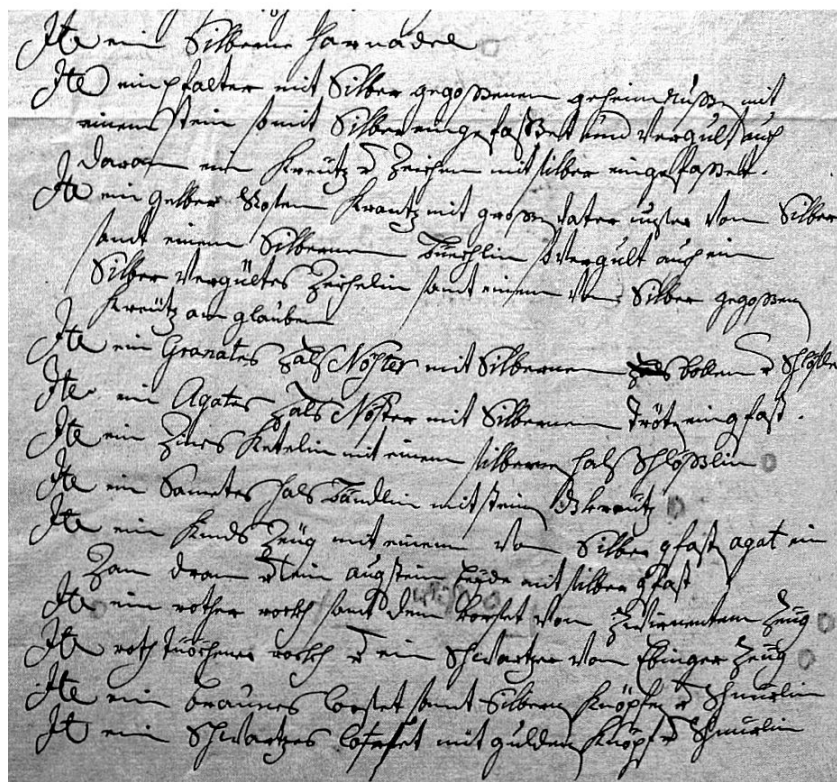 Ite ein Silberne Harnadel
Ite ein psalter mit Silber gegossenen geheimnussen mit
einem stein so mit Silber eingefasset und vergult auch
daran ein Kreütz Zeichen mit silber eingefasset.
Ite ein gelber Rosen Krantz mit grossen vater unser von Silber
samt einem Silbernen vergult auch ein
Silber vergultes samt einem von Silber gegossen
Kreütz am glauben
Ite ein Granates Hals Nöster mit Silbernen bollen Schlössle
Ite ein Agates Hals Nöster mit Silbernem eingfast.
Ite ein Ketelin mit einem silberne hals Schlösslin
Ite ein Sametes hals Bändlin mit stein Kreütz
Ite ein Kinds Zeüg mit einem von Silber gfast agat ein
Zan dran ein augstein beyde mit silber gfast
Ite ein rother rockh samt dem Corset von Zeüg
Ite roth rockh ein Schwartzer von Ebinger Zeüg
Ite ein braunes Corset samt Silbern Knöpfen Schnürlin
It ein Schwartzes mit gulden Knöpf Schnürlin